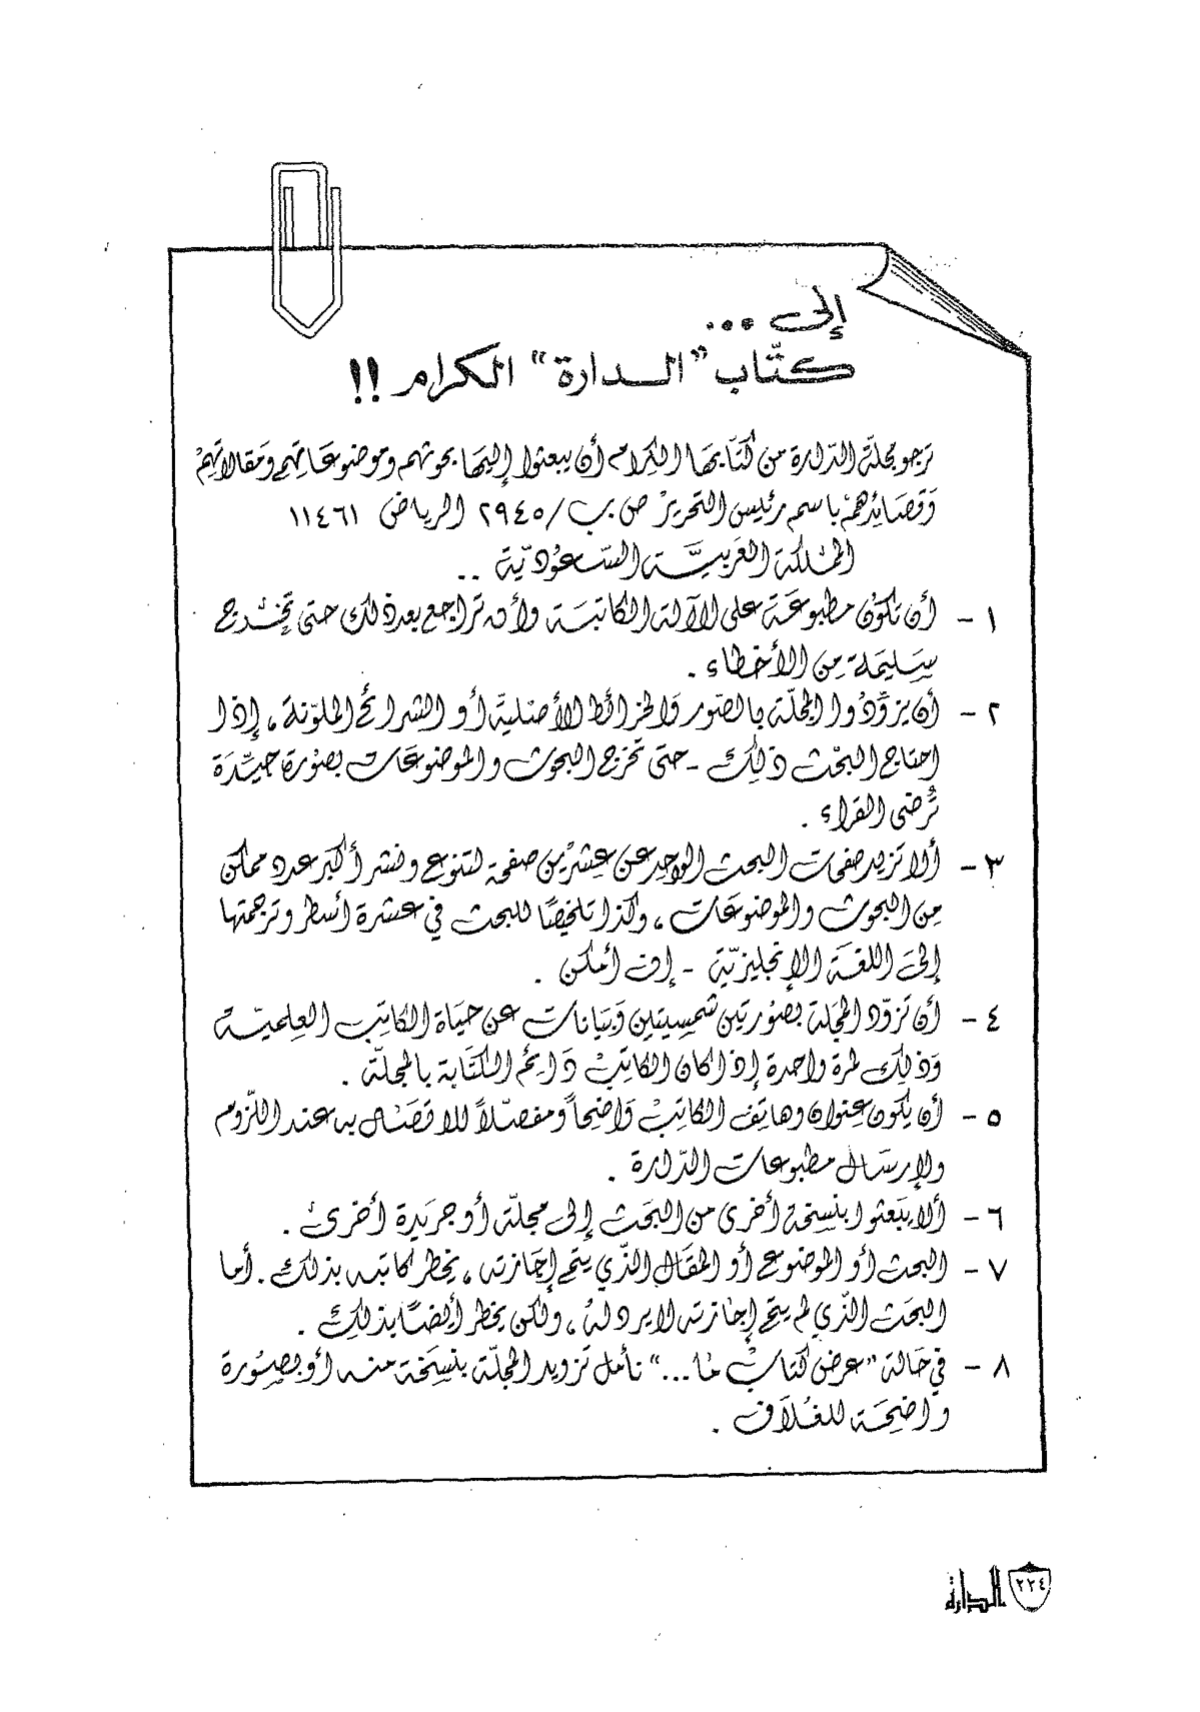 إلى ...
كتّاب "الدارة" الكرام !!
ترجو مجلة الدارة من كتّابها الكرام أن يبعثوا إليها بحوثهم وموضوعاتهم ومقالاتهم
وقصائدهم باسم رئيس التحرير ص.ب/ ٢٩٤٥ الرياض ١١٤٦١
المملكة العربيّة السّعوديّة ..
١ - أن تكون مطبوعة على الآلة الكاتبة وأن تراجع بعد ذلك حتى تخرج
سليمة من الأخطاء .
٢ - أن يزوّدوا المجلّة بالصّور والخرائط الأصليّة أو الشرائح الملوّنة ، إذا
احتاج البحث ذلك - حتى تخرج البحوث والموضوعات بصورة جيّدة
تُرضى القراء .
٣ - ألا تزيد صفحات البحث الواحد عن عشرين صفحة لتنوع ونشر أكبر عدد ممكن
من البحوث والموضوعات ، وكذا تلخيصًا للبحث في عشرة أسطر وترجمتها
إلى اللغة الإنجليزيّة - إن أمكن .
٤ - أن تزوّد المجلة بصورتين شمسيتين وبيانات عن حياة الكاتب العلميّة
وذلك لمرة واحدة إذا كان الكاتب دائم الكتابة بالمجلّة .
٥ - أن يكون عنوان وهاتف الكاتب واضحاً ومفصّلاً للاتصال به عند اللّزوم
ولإرسال مطبوعات الدّارة .
٦ - ألا يبعثوا بنسخة أخرى من البحث إلى مجلّة أو جريدة أخرى .
٧ - البحث أو الموضوع أو المقال الذّي يتم إجازته ، يخطر كاتبه بذلك . أما
البحث الذّي لم يتم إجازته لا يرد له ، ولكن يخطر أيضًا بذلك .
٨ - في حالة "عرض كتاب ما..." نأمل تزويد المجلّة بنسخة منه أو بصورة
واضحة للغلاف .
٢٢٤ الدارة